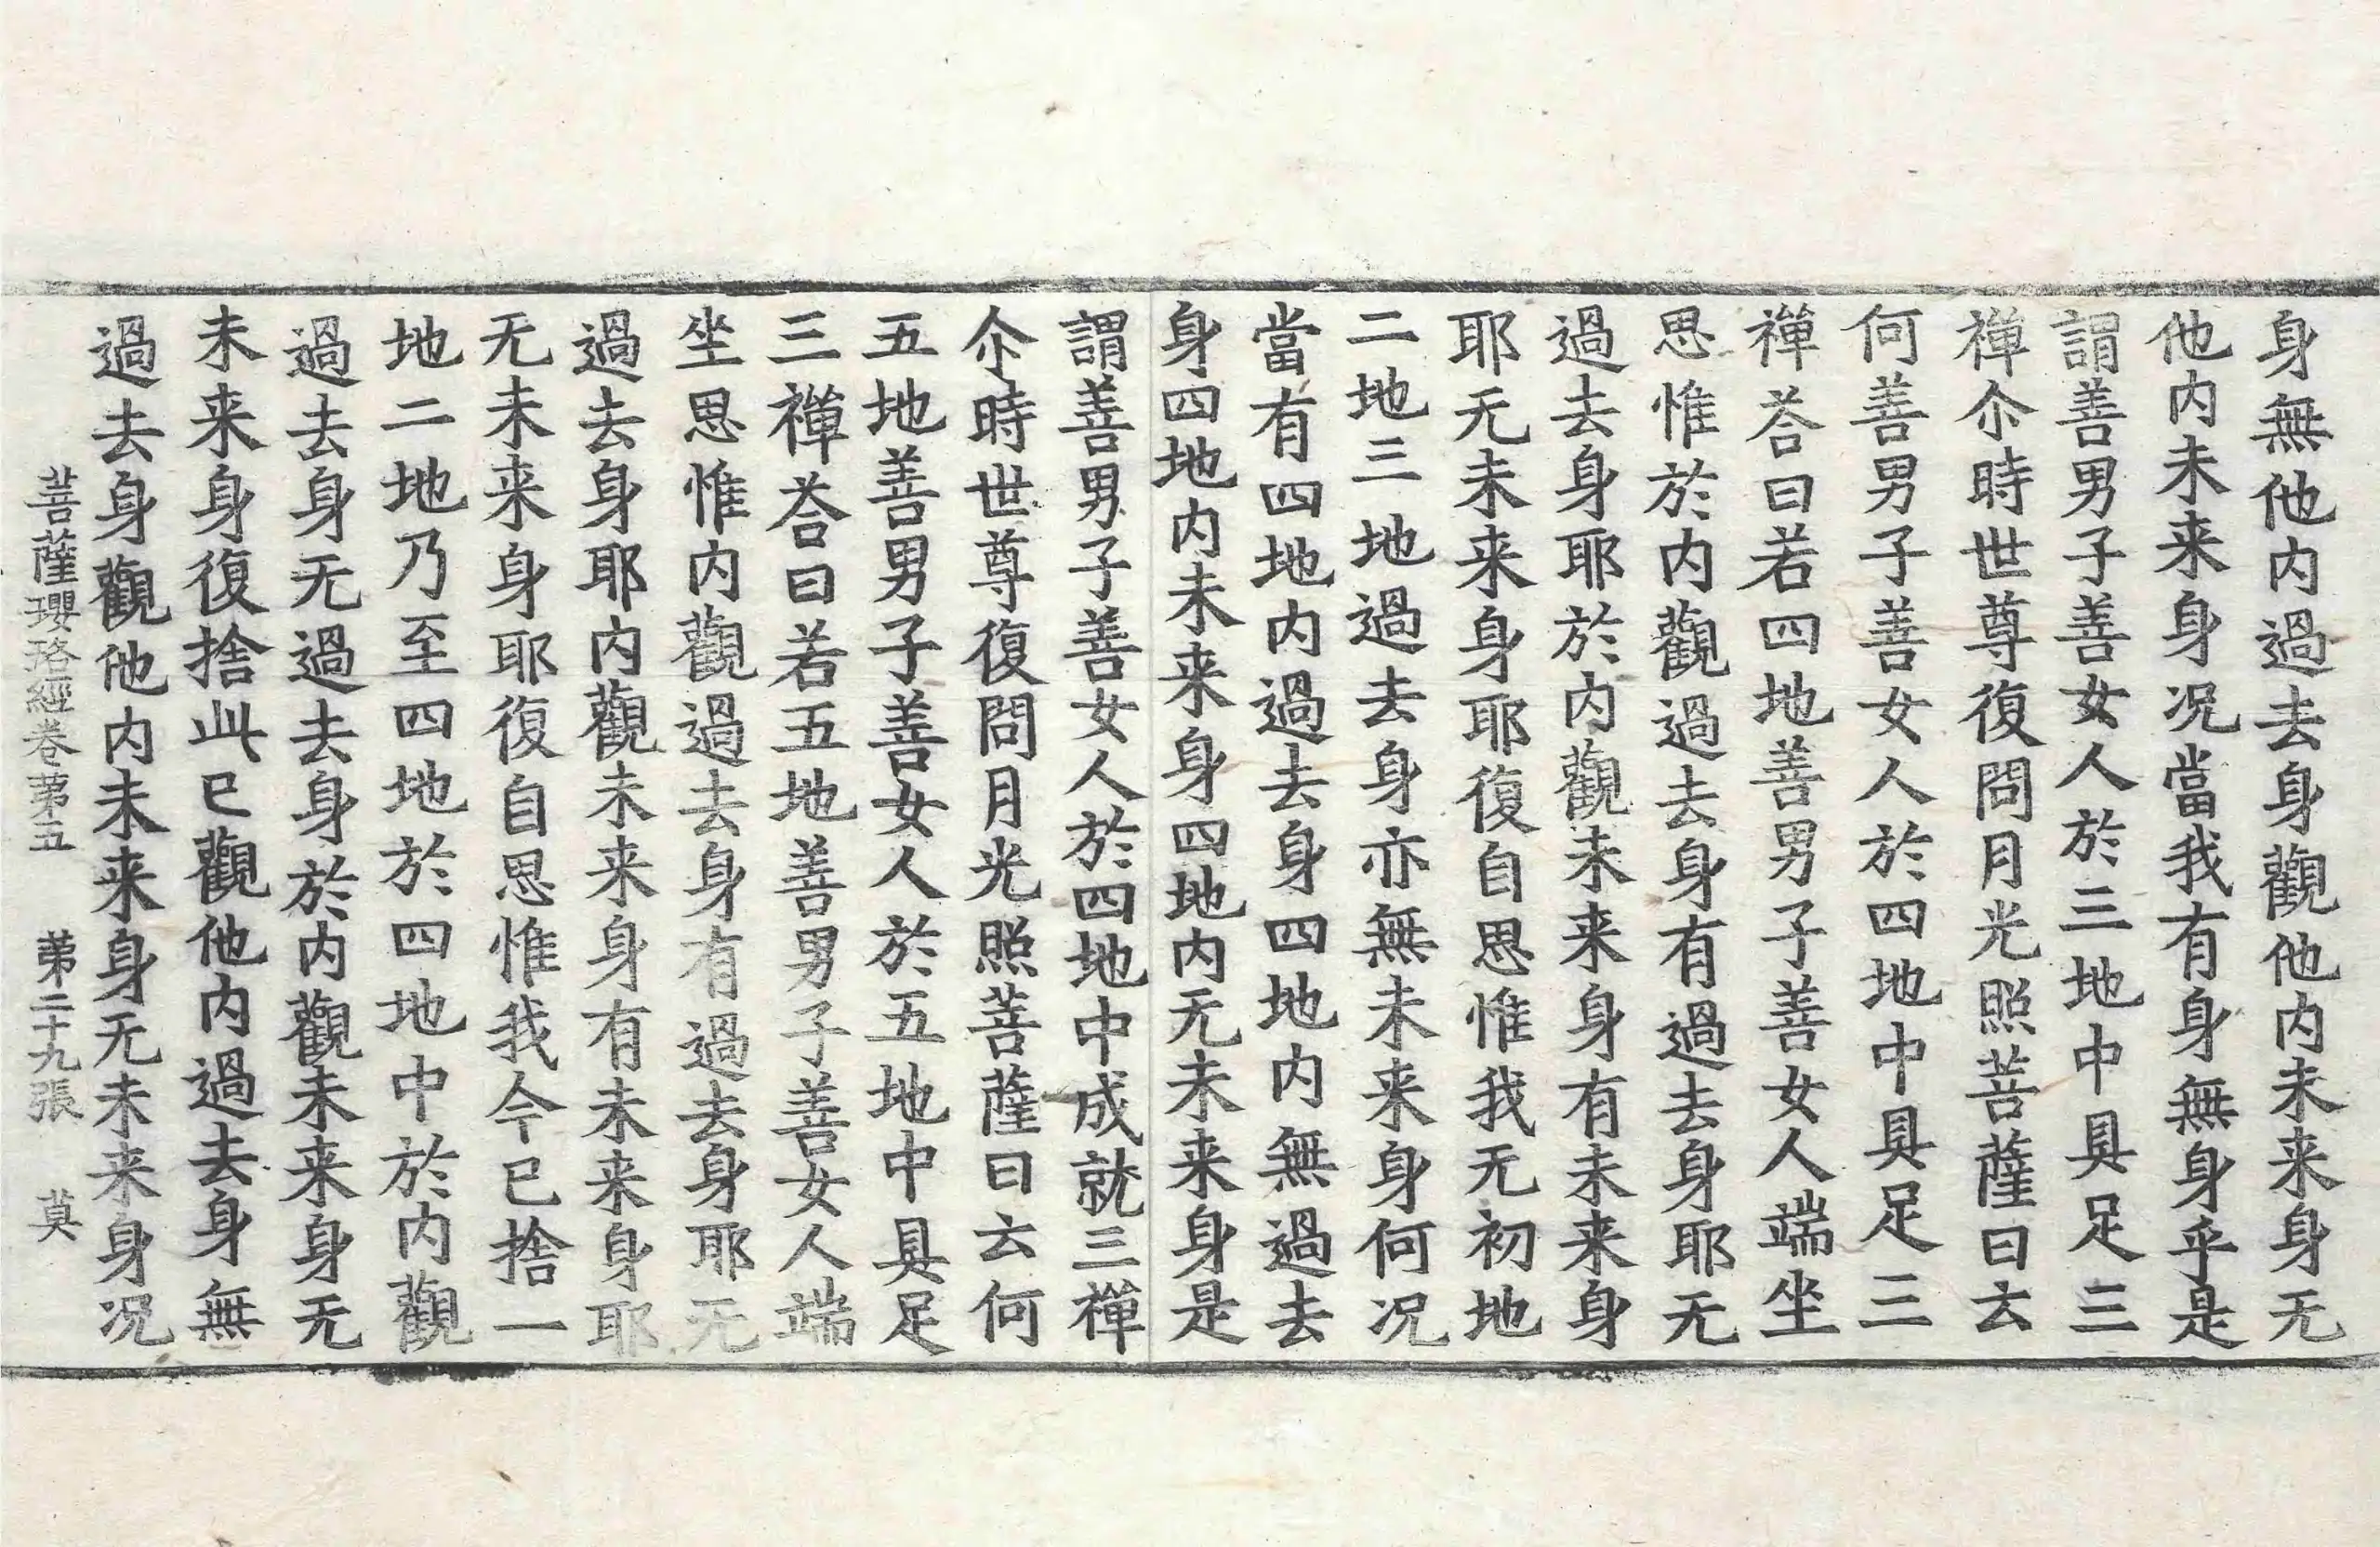 身無他内過去身觀他内未来身无
他内未来身况當我有身無身乎是
謂善男子善女人於三地中具足三
禅尒時世尊復問月光照菩薩曰云
何善男子善女人於四地中具足三
禅荅曰若四地善男子善女人端坐
思惟於内觀過去身有過去身耶无
過去身耶於内觀未来身有未来身
耶无未来身耶復自思惟我无初地
二地三地過去身亦無未来身何况
當有四地内過去身四地内無過去
身四地内未来身四地内无未来身是
謂善男子善女人於四地中成就三禅
尒時世尊復問月光照菩薩曰云何
五地善男子善女人於五地中具足
三禅荅曰若五地善男子善女人端
坐思惟内觀過去身有過去身耶无
過去身耶内觀未来身有未来身耶
无未来身耶復自思惟我今已捨一
地二地乃至四地於四地中於内觀
過去身无過去身於内觀未来身无
未来身復捨此已觀他内過去身無
過去身觀他内未来身无未来身况
菩薩瓔珞經卷第五 第二十九張 莫